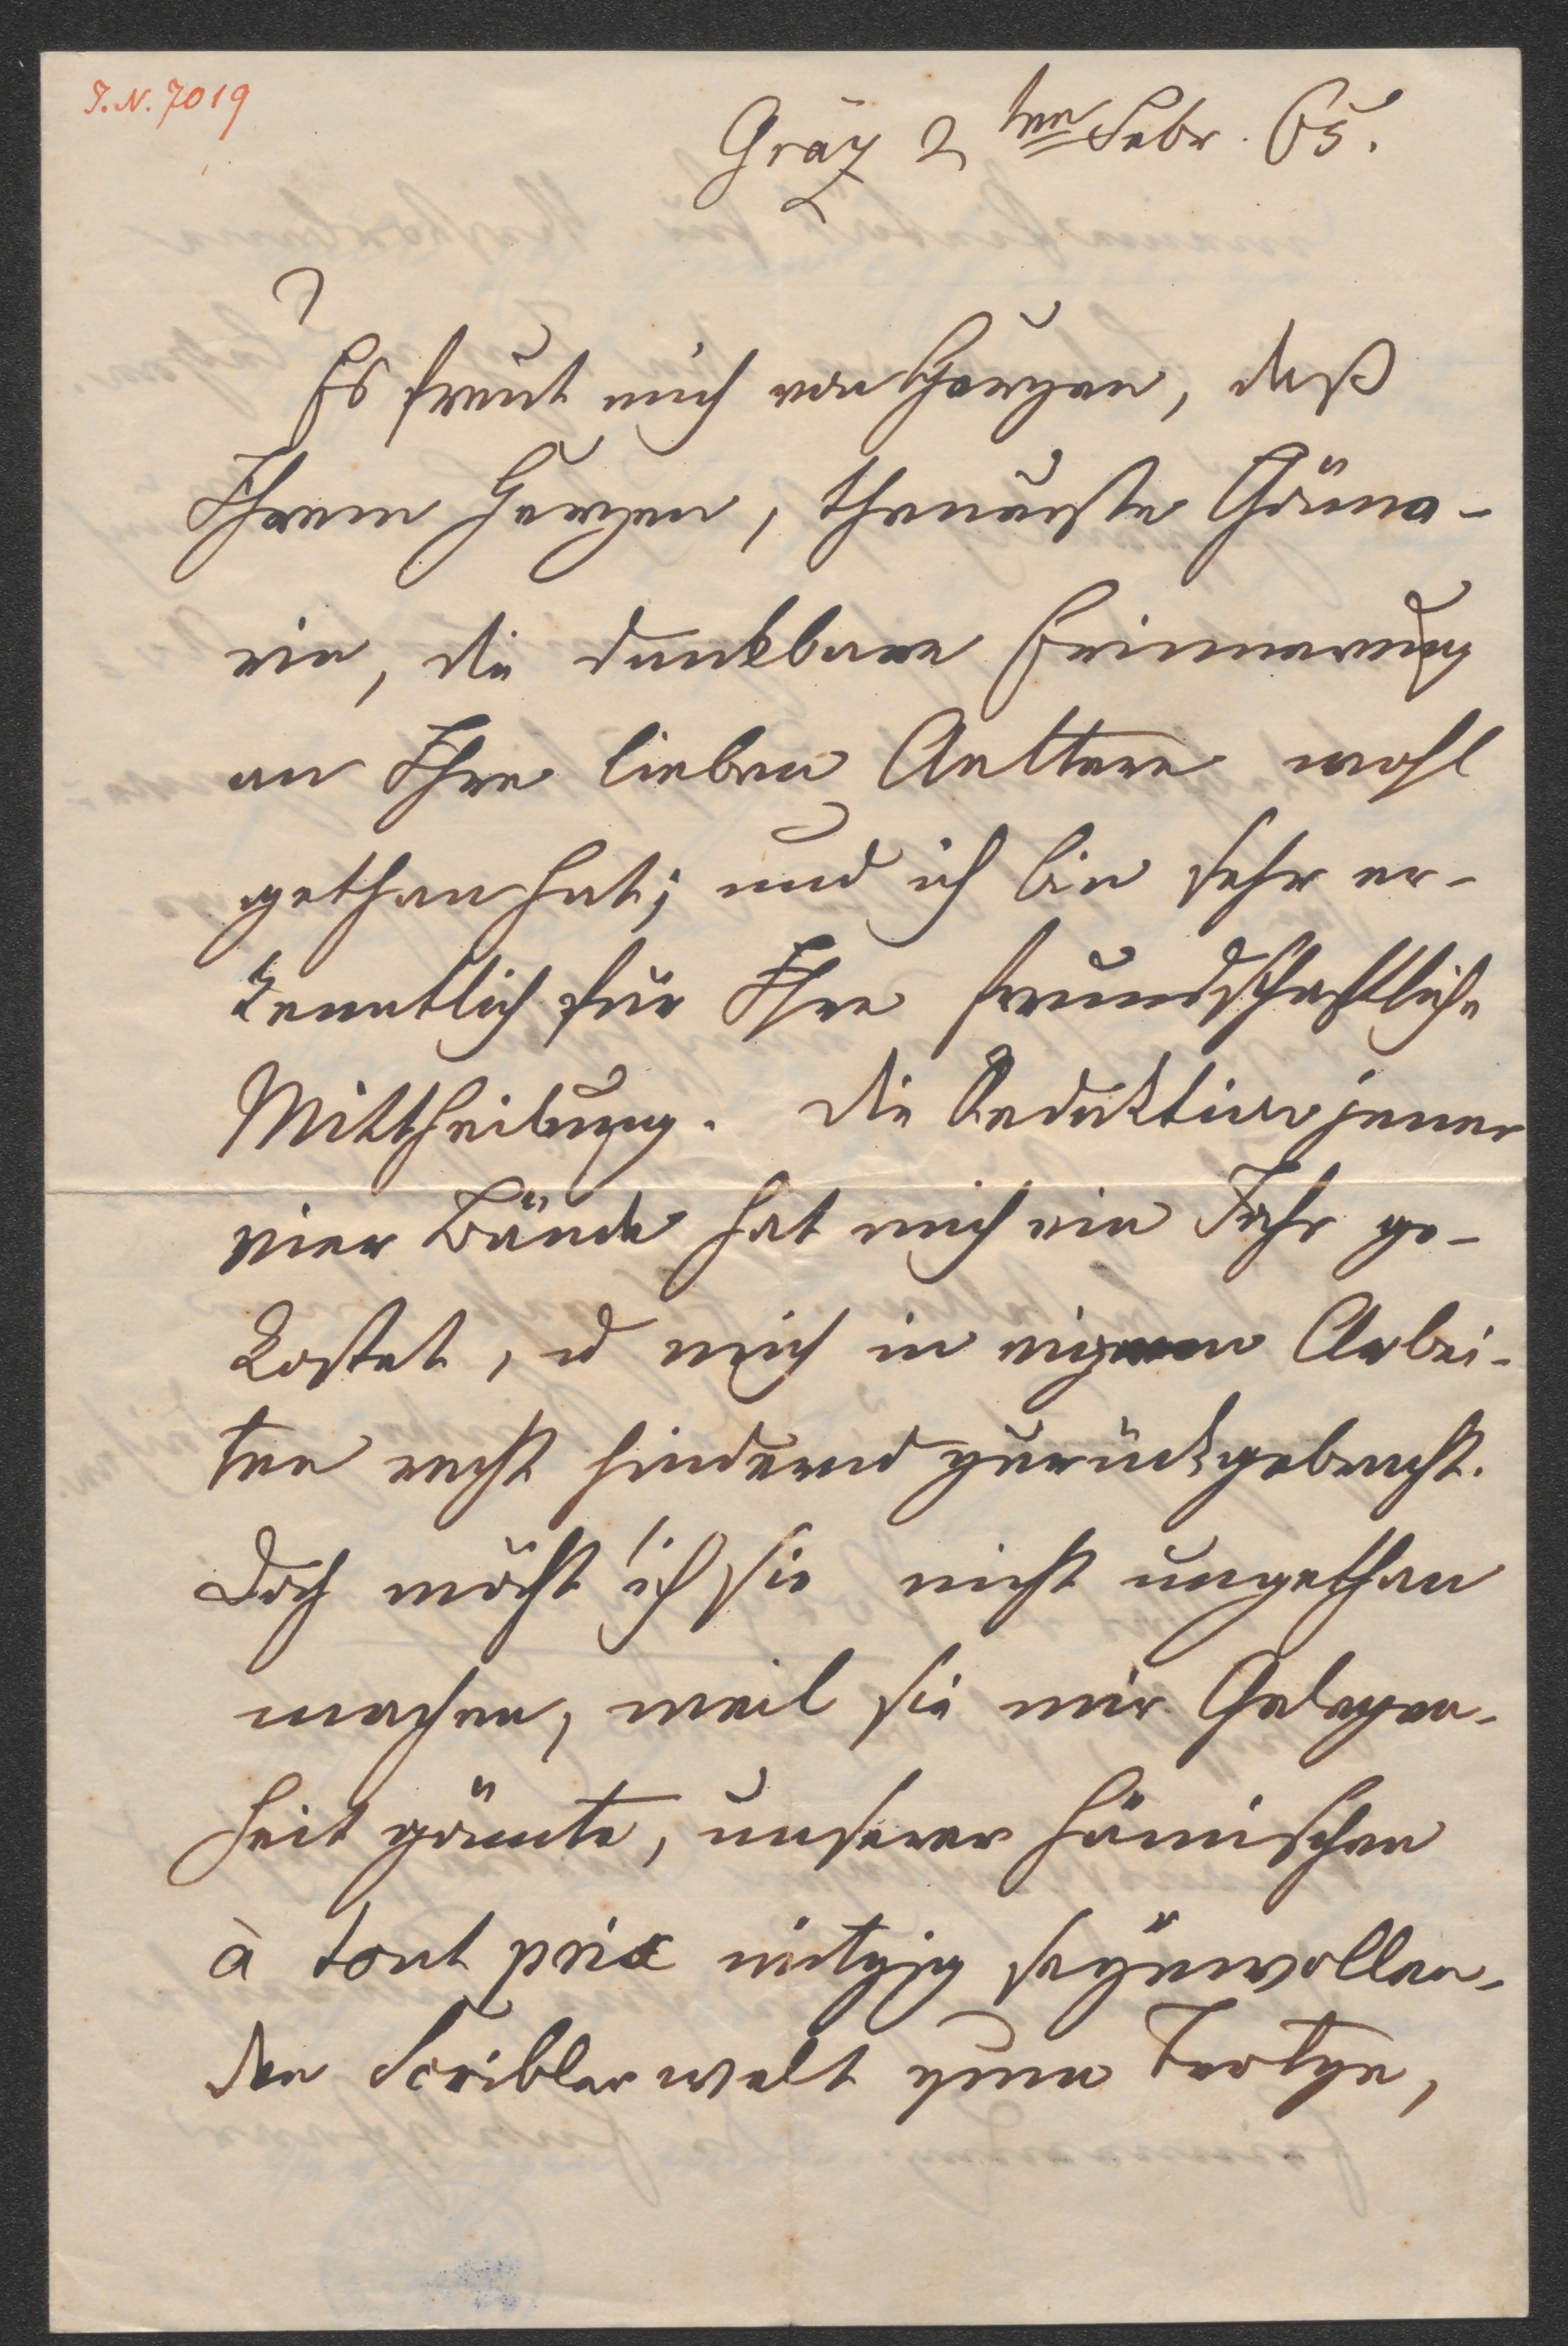 I.N. 7019
Gräz 2ten Febr. 65.
Es freut mich von Herzen, daß
Ihrem Herzen, theuerste Gönne-
rin, die dankbare Erinnerung
an Ihre lieben Aeltern wohl
gethan hat; und ich bin sehr er-
kenntlich für Ihre freundschaftliche
Mittheilung. Die Redaktion jener
vier Bände hat mich ein Jahr ge-
kostet, u mich in eigenen Arbei-
ten recht hindernd zurückgebracht.
Doch möcht' ich sie nicht ungethan
machen, weil sie mir Gelegen-
heit gönnte, unserer hämischen
à tout prix witzig seÿnwollen-
den Scriblerwelt zum Trotze,